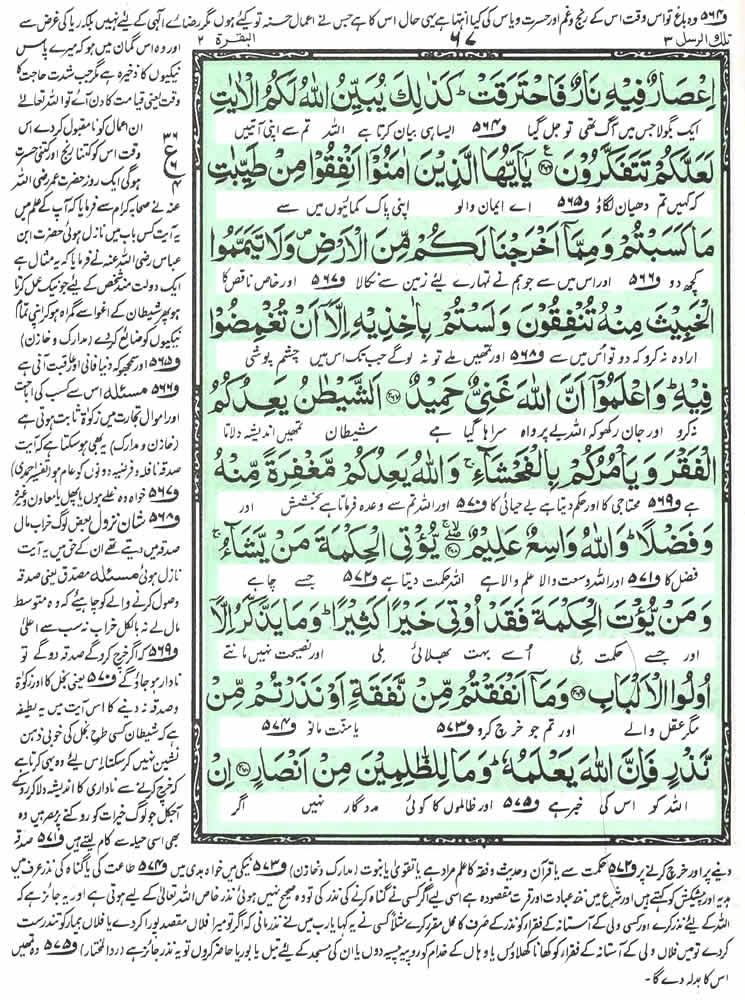 و۵۶۴ وہ باغ تو اس وقت اس کے رنج و غم اور حسرت و یاس کی کیا انتہا ہے یہی حال اس کا ہے جس نے اعمال حسنہ تو کیے ہوں مگر رضائے الٰہی کے لیے نہیں بلکہ ریا کی غرض سے
تلك الرسل ۳
۶۷
البقرة ۲
اِعْصَارٌ فِيْهِ نَارٌ فَاحْتَرَقَتْ ؕ كَذٰلِكَ يُبَيِّنُ اللّٰهُ لَكُمُ الْاٰيٰتِ
ایک بگولا جس میں آگ تھی تو جل گیا و۵۶۴ ایسا ہی بیان کرتا ہے اللہ تم سے اپنی آیتیں
لَعَلَّكُمْ تَتَفَكَّرُوْنَ ۟ يٰۤاَيُّهَا الَّذِيْنَ اٰمَنُوْۤا اَنْفِقُوْا مِنْ طَيِّبٰتِ
کہ کہیں تم دھیان لگاؤ و۵۶۵ اے ایمان والو اپنی پاک کمائیوں میں سے
مَا كَسَبْتُمْ وَمِمَّاۤ اَخْرَجْنَا لَكُمْ مِّنَ الْاَرْضِ ۪ وَلَا تَيَمَّمُوا
کچھ دو و۵۶۶ اور اس میں سے جو ہم نے تمہارے لئے زمین سے نکالا و۵۶۷ اور خاص ناقص کا
الْخَبِيْثَ مِنْهُ تُنْفِقُوْنَ وَلَسْتُمْ بِاٰخِذِيْهِ اِلَّاۤ اَنْ تُغْمِضُوْا
ارادہ نہ کرو کہ دو تو اُس میں سے و۵۶۸ اور تمھیں ملے تو نہ لوگے جب تک اس میں چشم پوشی
فِيْهِ ؕ وَاعْلَمُوْۤا اَنَّ اللّٰهَ غَنِيٌّ حَمِيْدٌ ۟ اَلشَّيْطٰنُ يَعِدُكُمُ
نہ کرو اور جان رکھو کہ اللہ بے پرواہ سراہا گیا ہے شیطان تمھیں اندیشہ دلاتا
الْفَقْرَ وَيَاْمُرُكُمْ بِالْفَحْشَآءِ ۚ وَاللّٰهُ يَعِدُكُمْ مَّغْفِرَةً مِّنْهُ
ہے و۵۶۹ محتاجی کا اور حکم دیتا ہے بے حیائی کا و۵۷۰ اور اللہ تم سے وعدہ فرماتا ہے بخشش اور
وَفَضْلًا ؕ وَاللّٰهُ وَاسِعٌ عَلِيْمٌ ۟ يُّؤْتِى الْحِكْمَةَ مَنْ يَّشَآءُ ۚ
فضل کا و۵۷۱ اور اللہ وسعت والا علم والا ہے اللہ حکمت دیتا ہے و۵۷۲ جسے چاہے
وَمَنْ يُّؤْتَ الْحِكْمَةَ فَقَدْ اُوْتِيَ خَيْرًا كَثِيْرًا ؕ وَمَا يَذَّكَّرُ اِلَّاۤ
اور جسے حکمت ملی اُسے بہت بھلائی ملی اور نصیحت نہیں مانتے
اُولُوا الْاَلْبَابِ ۟ وَمَاۤ اَنْفَقْتُمْ مِّنْ نَّفَقَةٍ اَوْ نَذَرْتُمْ مِّنْ
مگر عقل والے اور تم جو خرچ کرو و۵۷۳ یا منّت مانو و۵۷۴
نَّذْرٍ فَاِنَّ اللّٰهَ يَعْلَمُهٗ ؕ وَمَا لِلظّٰلِمِيْنَ مِنْ اَنْصَارٍ ۟ اِنْ
اللہ کو اس کی خبر ہے و۵۷۵ اور ظالموں کا کوئی مددگار نہیں اگر
اور وہ اس گمان میں ہو کہ میرے پاس
نیکیوں کا ذخیرہ ہے مگر جب شدت حاجت کا
وقت یعنی قیامت کا دن آئے تو اللہ تعالیٰ
ان اعمال کو نامقبول کردے اس
۳۶
وقت اس کو کتنا رنج اور کتنی حسرت
ع
۶
ہوگی ایک روز حضرت عمر رضی اللہ
۴
عنہ نے صحابہ کرام سے فرمایا کہ آپ کے علم میں
یہ آیت کس باب میں نازل ہوئی حضرت ابن
عباس رضی اللہ عنہ نے فرمایا کہ یہ مثال ہے
ایک دولت مند شخص کے لیے جو نیک عمل کرتا
ہو پھر شیطان کے اغوا سے گمراہ ہو کر اپنی تمام
نیکیوں کو ضائع کردے (مدارک و خازن)
و۵۶۵ اور سمجھو کہ دنیا فانی اور عاقبت آنی ہے
و۵۶۶ مسئلہ اس سے کسب کی اباحت
اور اموال تجارت میں زکوٰۃ ثابت ہوتی ہے
(خازن و مدارک) یہ بھی ہوسکتا ہے کہ آیت
صدقہ نافلہ و فرضیہ دونوں کو عام ہو (تفسیر احمدی)
و۵۶۷ خواہ وہ غلے ہوں یا پھل یا معادن وغیرہ
و۵۶۸ شان نزول بعض لوگ خراب مال
صدقہ میں دیتے تھے ان کے حق میں یہ آیت
نازل ہوئی مسئلہ مصدق یعنی صدقہ
وصول کرنے والے کو چاہیے کہ وہ متوسط
مال لے نہ بالکل خراب نہ سب سے اعلیٰ
و۵۶۹ کہ اگر خرچ کروگے صدقہ دوگے تو
نادار ہوجاؤگے و۵۷۰ یعنی بخل کا اور زکوٰۃ
و صدقہ نہ دینے کا اس آیت میں یہ لطیفہ
ہے کہ شیطان کسی طرح بخل کی خوبی ذہن
نشین نہیں کرسکتا اس لیے وہ یہی کرتا ہے
کہ خرچ کرنے سے ناداری کا اندیشہ دلا کر روکے
آجکل جو لوگ خیرات کو روکنے پر مصر ہیں وہ
بھی اسی حیلہ سے کام لیتے ہیں و۵۷۱ صدقہ
دینے پر اور خرچ کرنے پر و۵۷۲ حکمت سے یا قرآن و حدیث و فقہ کا علم مراد ہے یا تقویٰ یا نبوت (مدارک و خازن) و۵۷۳ نیکی میں خواہ بدی میں و۵۷۴ طاعت کی یا گناہ کی نذر عرف میں
ہدیہ اور پیشکش کو کہتے ہیں اور شرع میں نذر عبادت اور قربت مقصودہ ہے اسی لیے اگر کسی نے گناہ کرنے کی نذر کی تو وہ صحیح نہیں ہوئی نذر خاص اللہ تعالیٰ کے لیے ہوتی ہے اور یہ جائز ہے کہ
اللہ کے لئے نذر کرے اور کسی ولی کے آستانہ کے فقراء کو نذر کے صرف کا محل مقرر کرے مثلاً کسی نے یہ کہا یارب میں نے نذر مانی کہ اگر تو میرا فلاں مقصد پورا کردے یا فلاں بیمار کو تندرست
کردے تو میں فلاں ولی کے آستانہ کے فقراء کو کھانا کھلاؤں یا وہاں کے خدام کو روپیہ پیسہ دوں یا ان کی مسجد کے لیے تیل یا بوریا حاضر کروں تو یہ نذر جائز ہے (ردالمحتار) و۵۷۵ وہ تمھیں
اس کا بدلہ دے گا۔